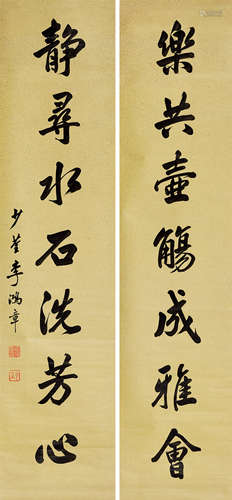 樂共壺觴成雅會
靜尋水石洗芳心
少荃李鴻章